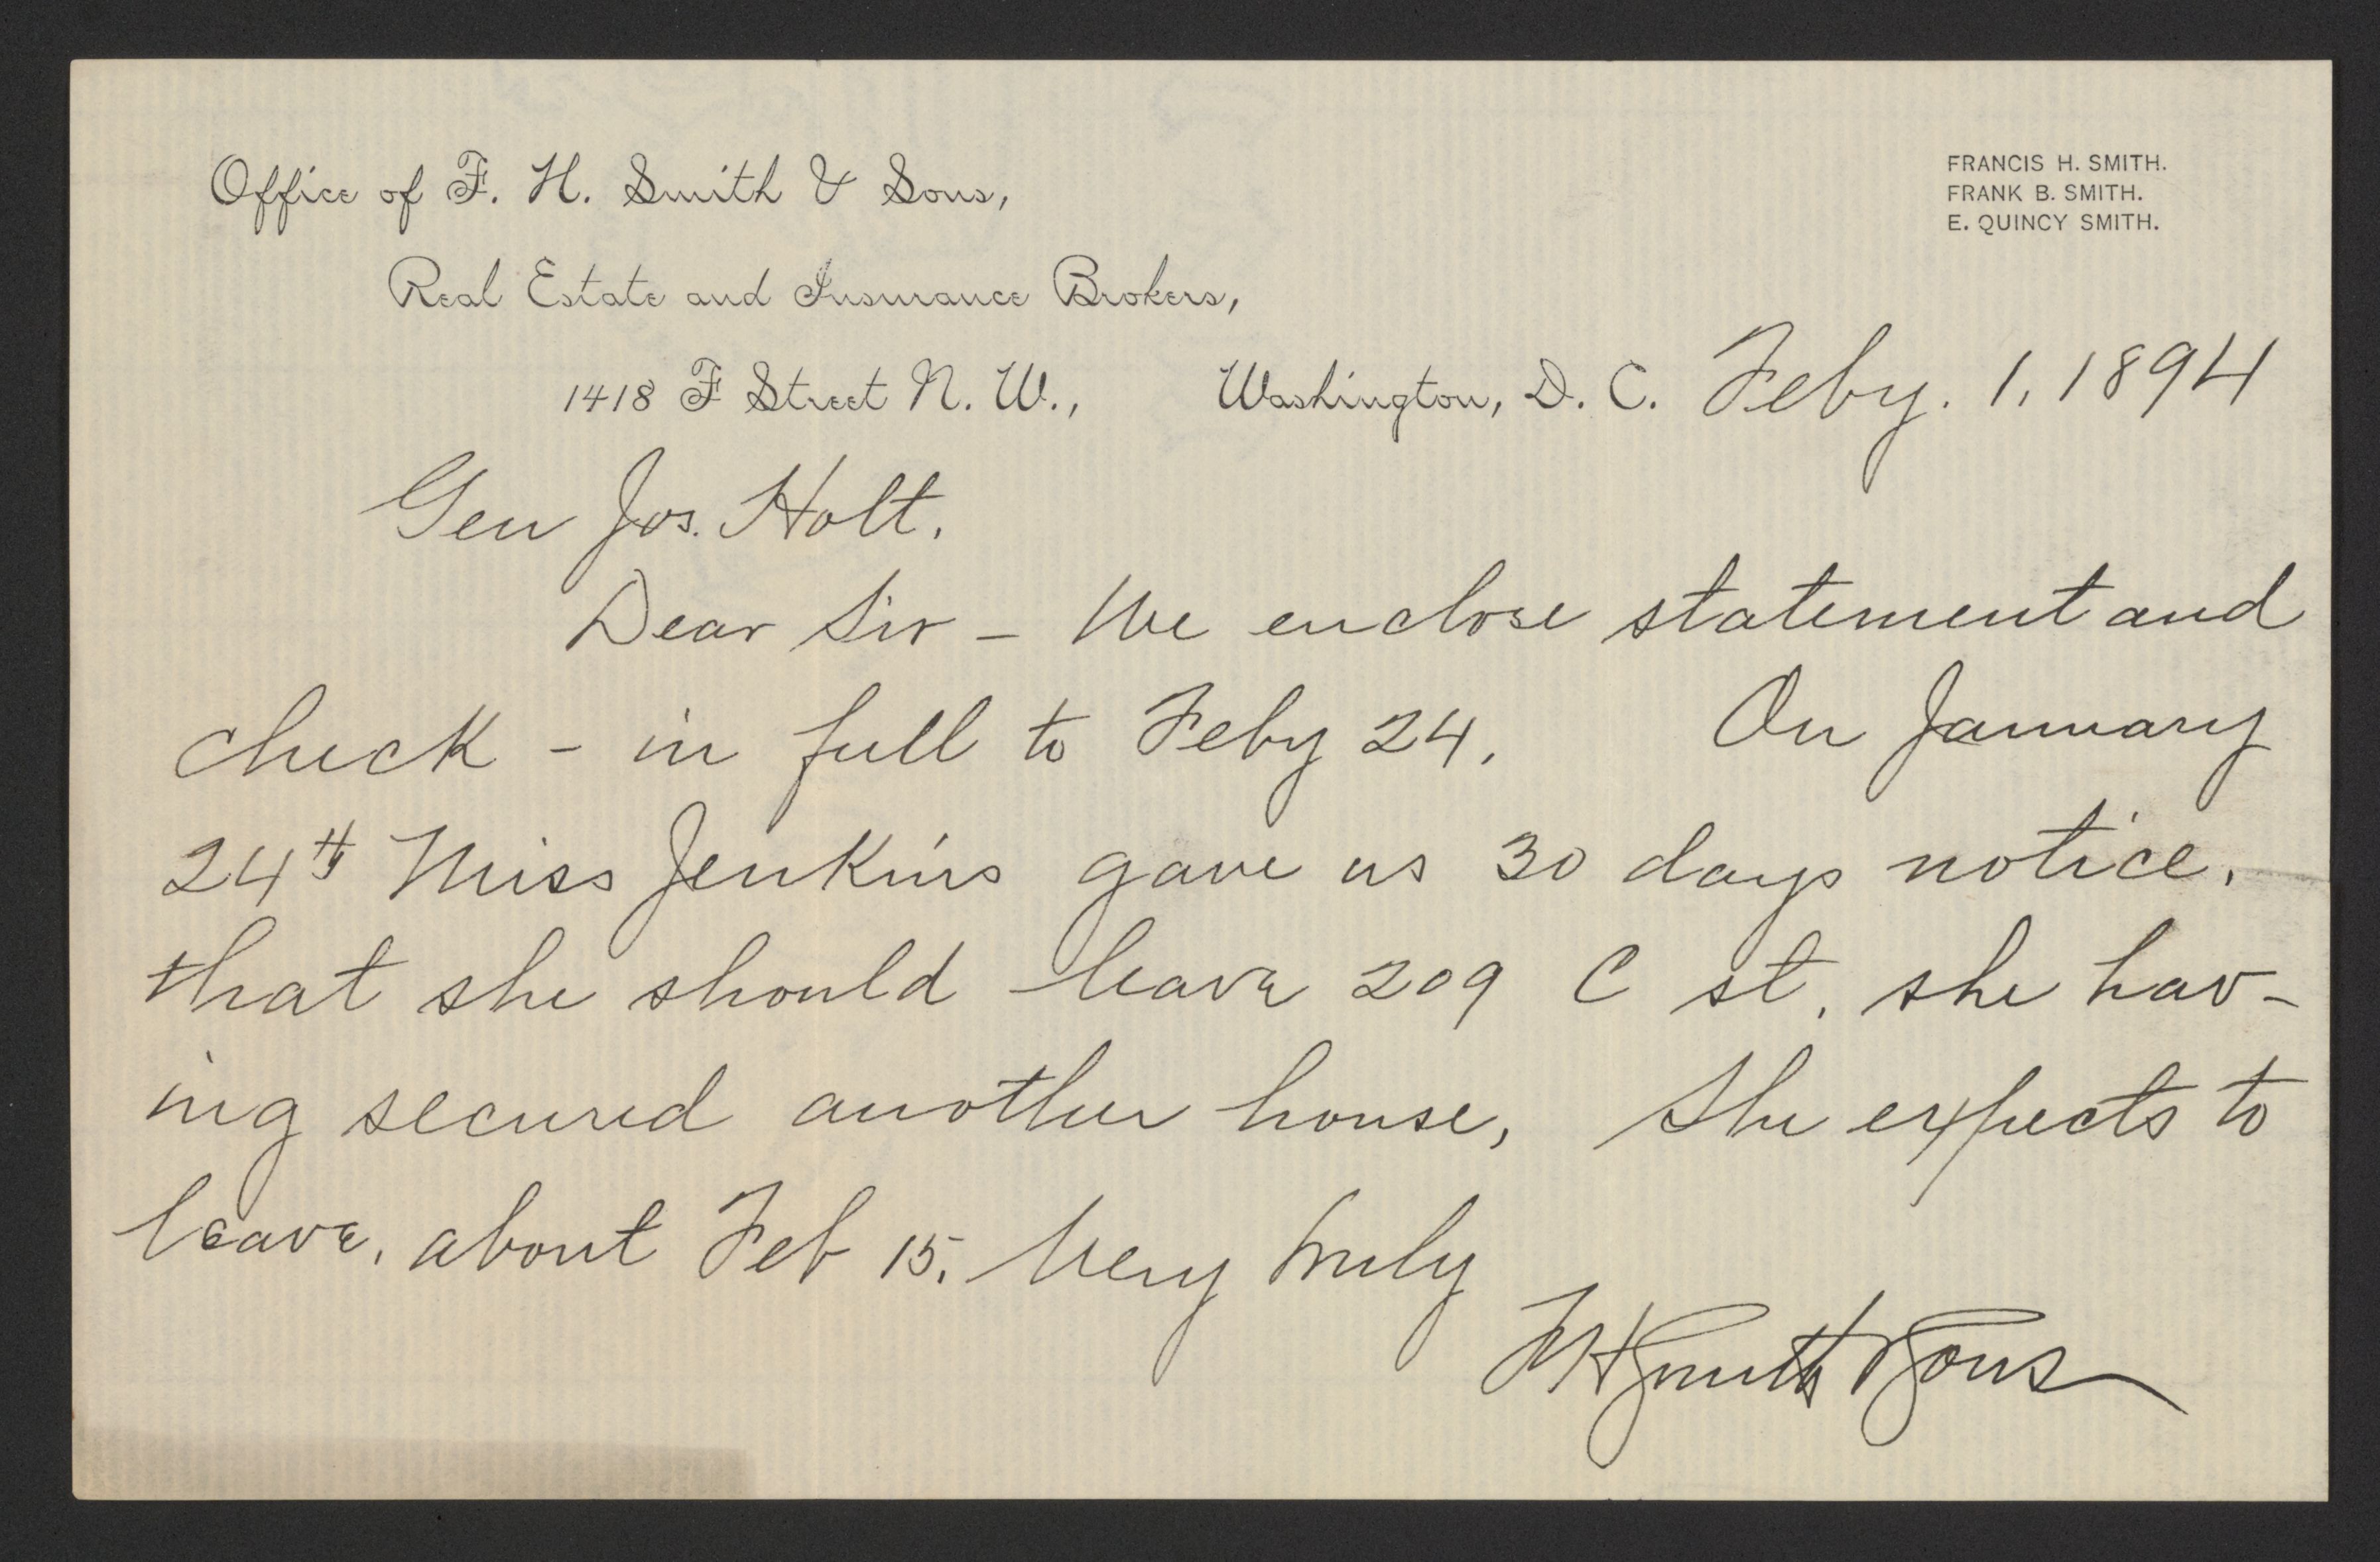 Office of F. H. Smith & Sons,
FRANCIS H. SMITH.
FRANK B. SMITH.
E. QUINCY SMITH.
Real Estate and Insurance Brokers,
1418 F Street N. W., Washington, D. C. Feby. 1, 1894
Gen Jos. Holt.
Dear Sir – We enclose statement and
check – in full to Feby 24. On January
24th Miss Jenkins gave us 30 days notice,
that she should leave 209 C st, she hav-
ing secured another house, She expects to
leave, about Feb 15. Very truly
F H Smith & Sons